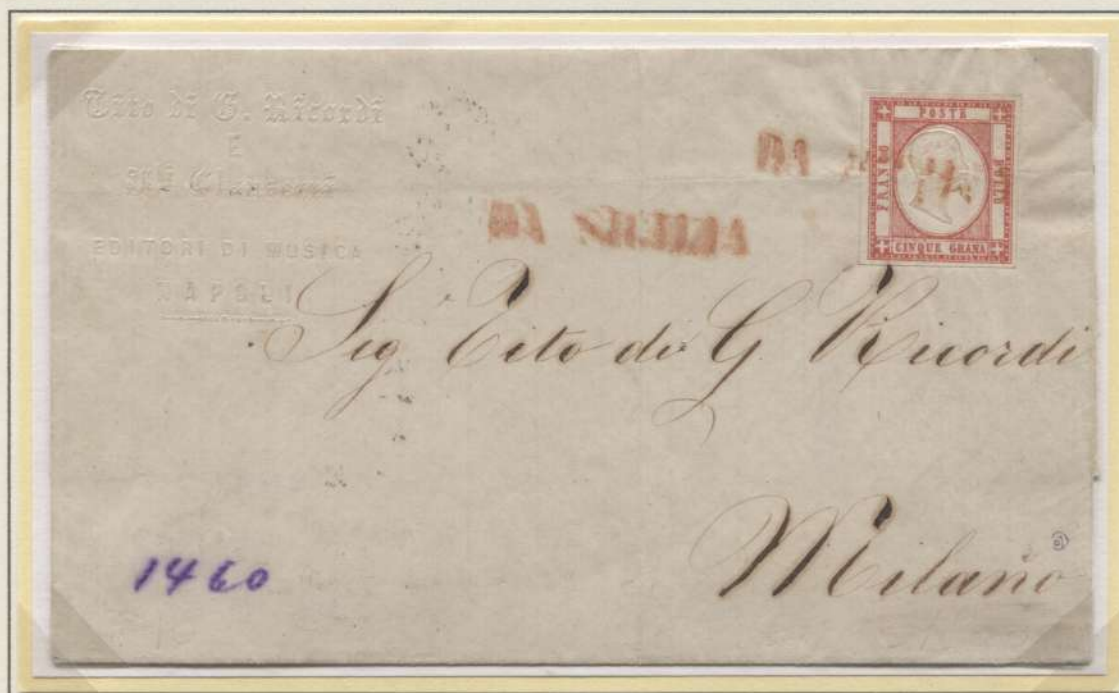 Tito di G. Ricordi
E
EDITORI DI MUSICA
NAPOLI
POSTE
FRANCO
BOLLO
CINQUE GRANA
Sig Tito di G. Ricordi
Milano
1460